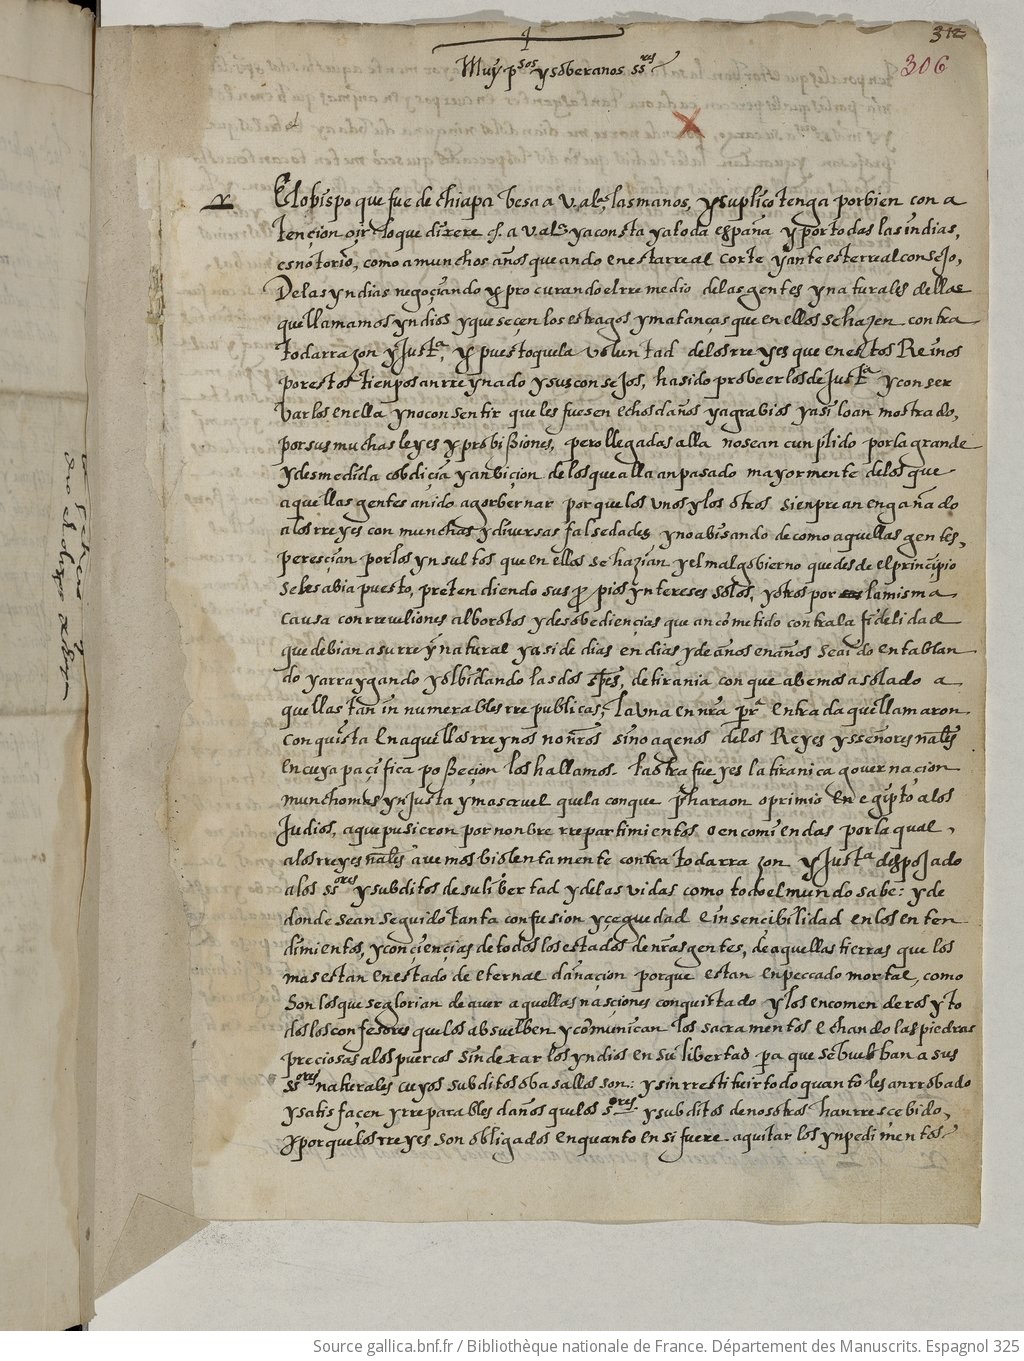 312
306
Muy p.sos y soberanos ss.res
El obispo que fue de chiapa besa a v. al.as las manos, y suplico tenga por bien con a
tençion oir lo que dixere q. a v. al.as ya consta y a toda españa y por todas las indias,
es notorio, como a munchos años que ando en esta rreal corte y ante este rreal consejo,
De las yndias negoçiando y procurando el rremedio de las gentes y naturales dellas
que llamamos yndios y que seçen los estragos y matanças que en ellos se hazen contra
toda rrazon y just.a, y puesto que la voluntad de los rreyes que en estos Reinos
por estos tienpos an rreynado y sus consejos, ha sido probeerlos de just.a y conser
varlos en ella y no consentir que les fuesen echos daños y agrabios y asi lo an mostrado,
por sus muchas leyes y probissiones, pero llegadas alla no se an cunplido por la grande
y desmedida cobdiçia y anbiçion de los que alla an pasado mayormente de los que
aquellas gentes an ido a gorbernar porque los unos y los otros sienpre an engañado
a los rreyes con munchas y diversas falsedades y no abisando de como aquellas gentes,
peresçian por los ynsultos que en ellos se hazian y el mal gobierno que desde el prinçipio
se les abia puesto, pretendiendo sus propios yntereses solos, y otros por la misma
causa con rrevuliones alborotos y desobediençias que an cometido contra la fidelidad
que debian a su rrey natural y asi de dias en dias y de años en años se a ido entablan
do y arraygando y olbidando las dos spes, de tirania con que abemos asolado a
quellas tan innumerables rrepublicas, la una en nra pr.a entrada que llamaron
conquista en aquellos rreynos no nros sino agenos de los Reyes y señores nales
en cuya paçifica posseçion los hallamos. la otra fue y es la tiranica governacion
muncho mas ynjusta y mas cruel que la con que pharaon oprimio en egipto a los
Judios, a que pusieron por nonbre rrepartimientos o encomiendas por la qual,
a los rreyes nales avemos biolentamente contra toda rrazon y just.a despojado
a los ss.ores y subditos de su libertad y de las vidas como todo el mundo sabe: y de
donde se an seguido tanta confusion y çeguedad e insencibilidad en los enten
dimientos, y conçiençias de todos los estados de nras gentes, de aquellas tierras que los
mas estan en estado de eternal danaçion porque estan en peccado mortal, como
son los que se glorian de aver aquellas nasçiones conquistado y los encomenderos y to
dos los confesores que los absuelben y comunican los sacramentos echando las piedras
preciosas a los puercos sin dexar los yndios en su libertad pa que se buelban a sus
ss.ores naturales cuyos subditos o basallos son: y sin rrestituir todo quanto les an rrobado
y satisfacen yrreparables daños que los s.ores y subditos de nosotros han rrescebido,
y porque los rreyes son obligados en quanto en si fuere a quitar los ynpedimentos
Source gallica.bnf.fr / Bibliothèque nationale de France. Département des Manuscrits. Espagnol 325